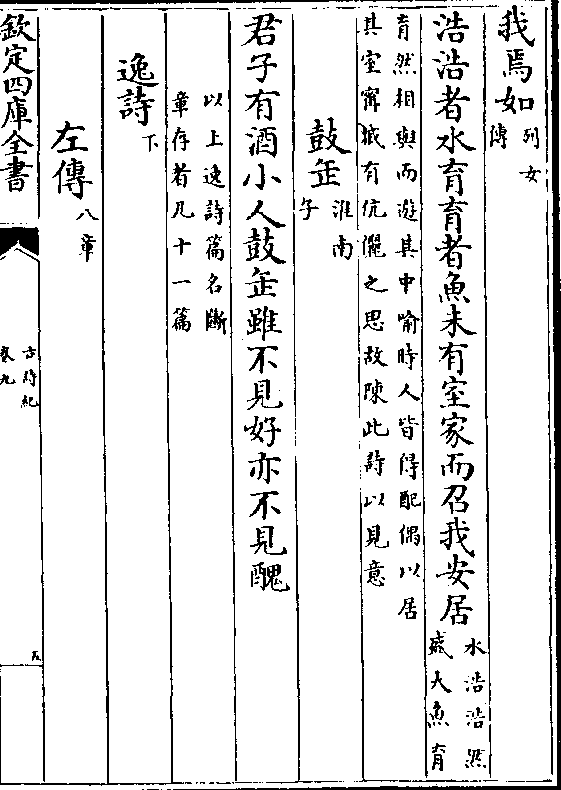 我焉如列女傳
浩浩者水育育者魚未有室家而召我安居水浩浩然盛大魚育
育然相與而遊其中喻時人皆得配偶以居其室甯戚有伉儷之思故陳此詩以見意
鼓缶淮南子
君子有酒小人鼓缶雖不見好亦不見醜
以上逸詩篇名斷章存者凡十一篇
逸詩下
左傳八章
欽定四庫全書
古詩紀
卷九
五